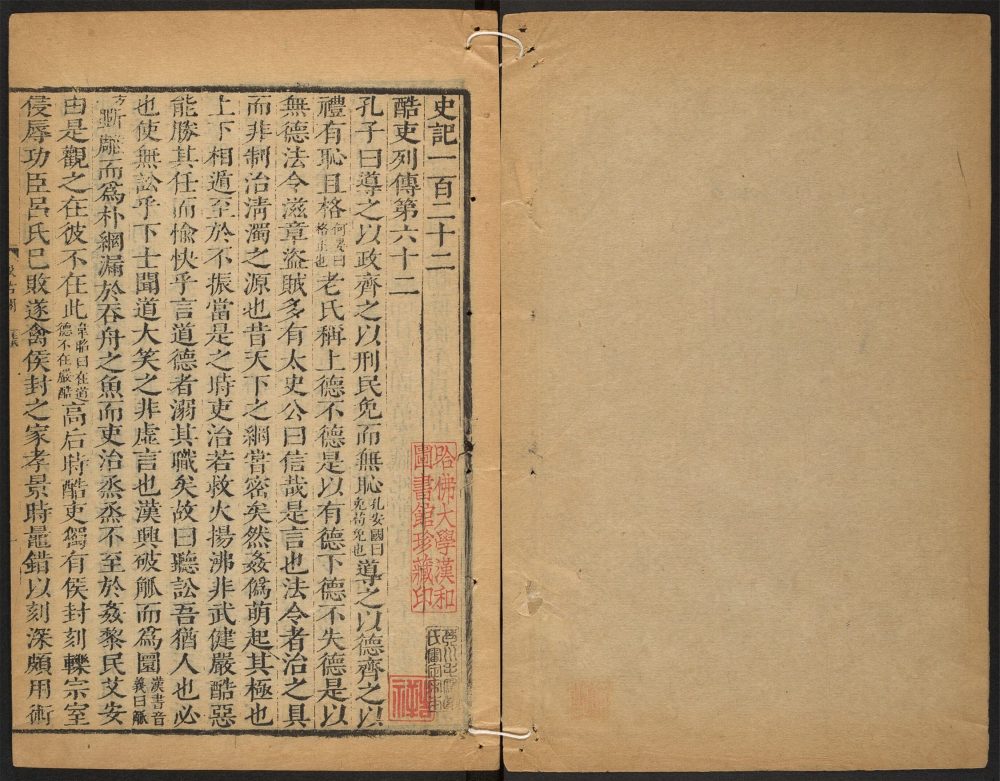 史記一百二十二
酷吏列傳第六十二
孔子曰導之以政齊之以刑民免而無恥孔安國曰免苟免也導之以德齊之以
禮有恥且格何晏曰格正也老氏稱上德不德是以有德下德不失德是以
無德法令滋章盜賊多有太史公曰信哉是言也法令者治之具
而非制治淸濁之源也昔天下之網嘗密矣然姦僞萌起其極也
上下相遁至於不振當是之時吏治若救火揚沸非武健嚴酷惡
能勝其任而愉快乎言道德者溺其職矣故曰聽訟吾猶人也必
也使無訟乎下士聞道大笑之非虛言也漢興破觚而爲圜漢書音義曰觚
方斲雕而爲朴網漏於吞舟之魚而吏治烝烝不至於姦黎民艾安
由是觀之在彼不在此韋昭曰在道德不在嚴酷高后時酷吏獨有侯封刻轢宗室
侵辱功臣呂氏已敗遂禽侯封之家孝景時鼂錯以刻深頗用術
哈佛大學漢和
圖書館珍藏印